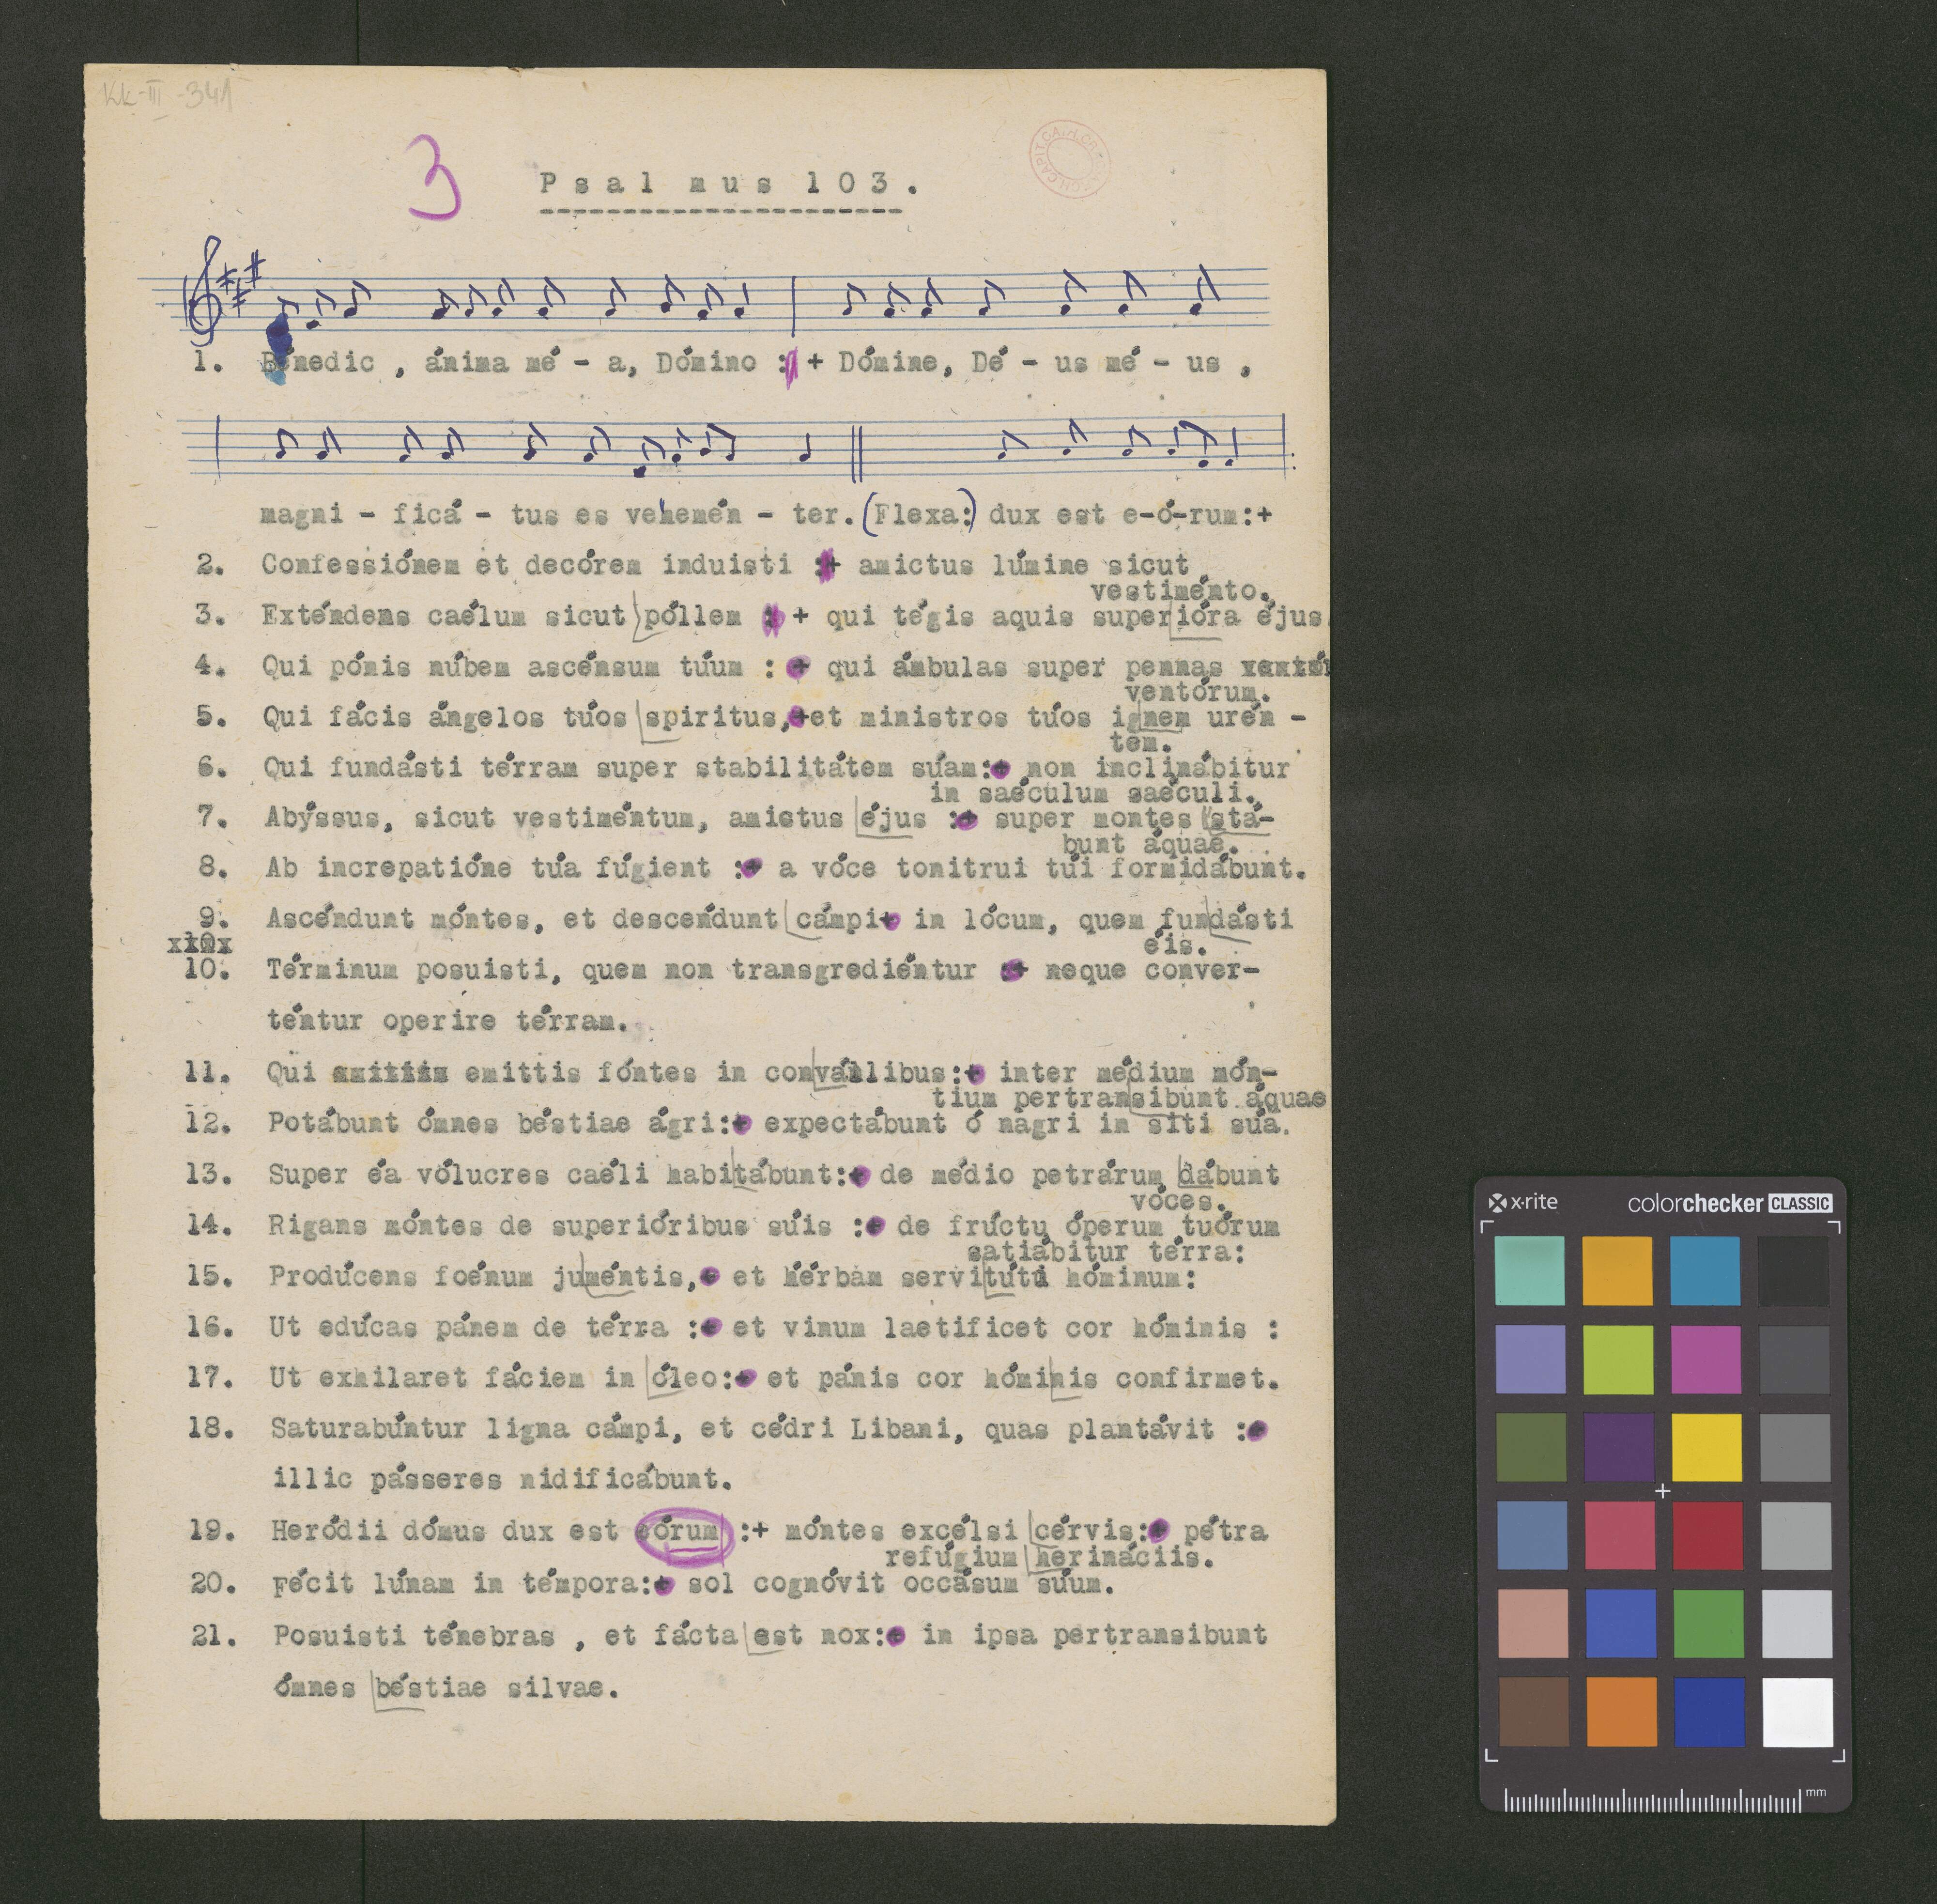 Kk-III-341
3
Psalmus 103.
1. Bénedic , ánima mé - a, Dómino : + Dómine, Dé - us mé - us ,
magni - ficá - tus es vehemén - ter. (Flexa:) dux est e-ó-rum:+
2. Confessiónem et decórem induisti :+ amictus lúmine sicut
vestiménto.
3. Exténdens caélum sicut póllem : + qui tégis aquis superióra éjus
4. Qui pónis núbem ascénsum túum : + qui ámbulas super pennas
ventórum.
5. Qui fácis ángelos túos spiritus,+et ministros túos ignem urén -
tem.
6. Qui fundásti térram super stabilitátem súam:+ non inclinábitur
in saéculum saéculi.
7. Abýssus, sicut vestiméntum, amictus éjus :+ super montes stá-
bunt áquae.
8. Ab increpatióne túa fúgient :+ a vóce tonitrui túi formidábunt.
9. Ascéndunt móntes, et descéndunt cámpi+ in lócum, quem fundásti
éis.
10. Términum posuisti, quem non transgrediéntur :+ neque conver-
téntur operire térram.
11. Qui emittis fóntes in convállibus:+ inter médium món-
tium pertransibunt áquae
12. Potábunt ómnes béstiae ágri:+ expectábunt ó nagri in siti súa.
13. Super éa vólucres caéli habitábunt:+ de médio petrárum dábunt
vóces.
14. Rigans móntes de superióribus súis :+ de frúctu óperum tuórum
satiábitur térra:
15. Prodúcens foénum juméntis,+ et hérbam servitúti hóminum:
16. Ut edúcas pánem de térra :+ et vinum laetificet cor hóminis :
17. Ut exhilaret fáciem in óleo:+ et pánis cor hóminis confirmet.
18. Saturabúntur ligna cámpi, et cédri Libani, quas plantávit :+
illic pásseres nidificábunt.
19. Heródii dómus dux est eórum :+ móntes excélsi cérvis:+ pétra
refúgium herináciis.
20. Fécit lúnam in témpora:+ sol cognóvit occásum súum.
21. Posuisti ténebras , et fácta est nox:+ in ipsa pertransibunt
ómnes béstiae silvae.
x-rite
colorchecker CLASSIC
mm